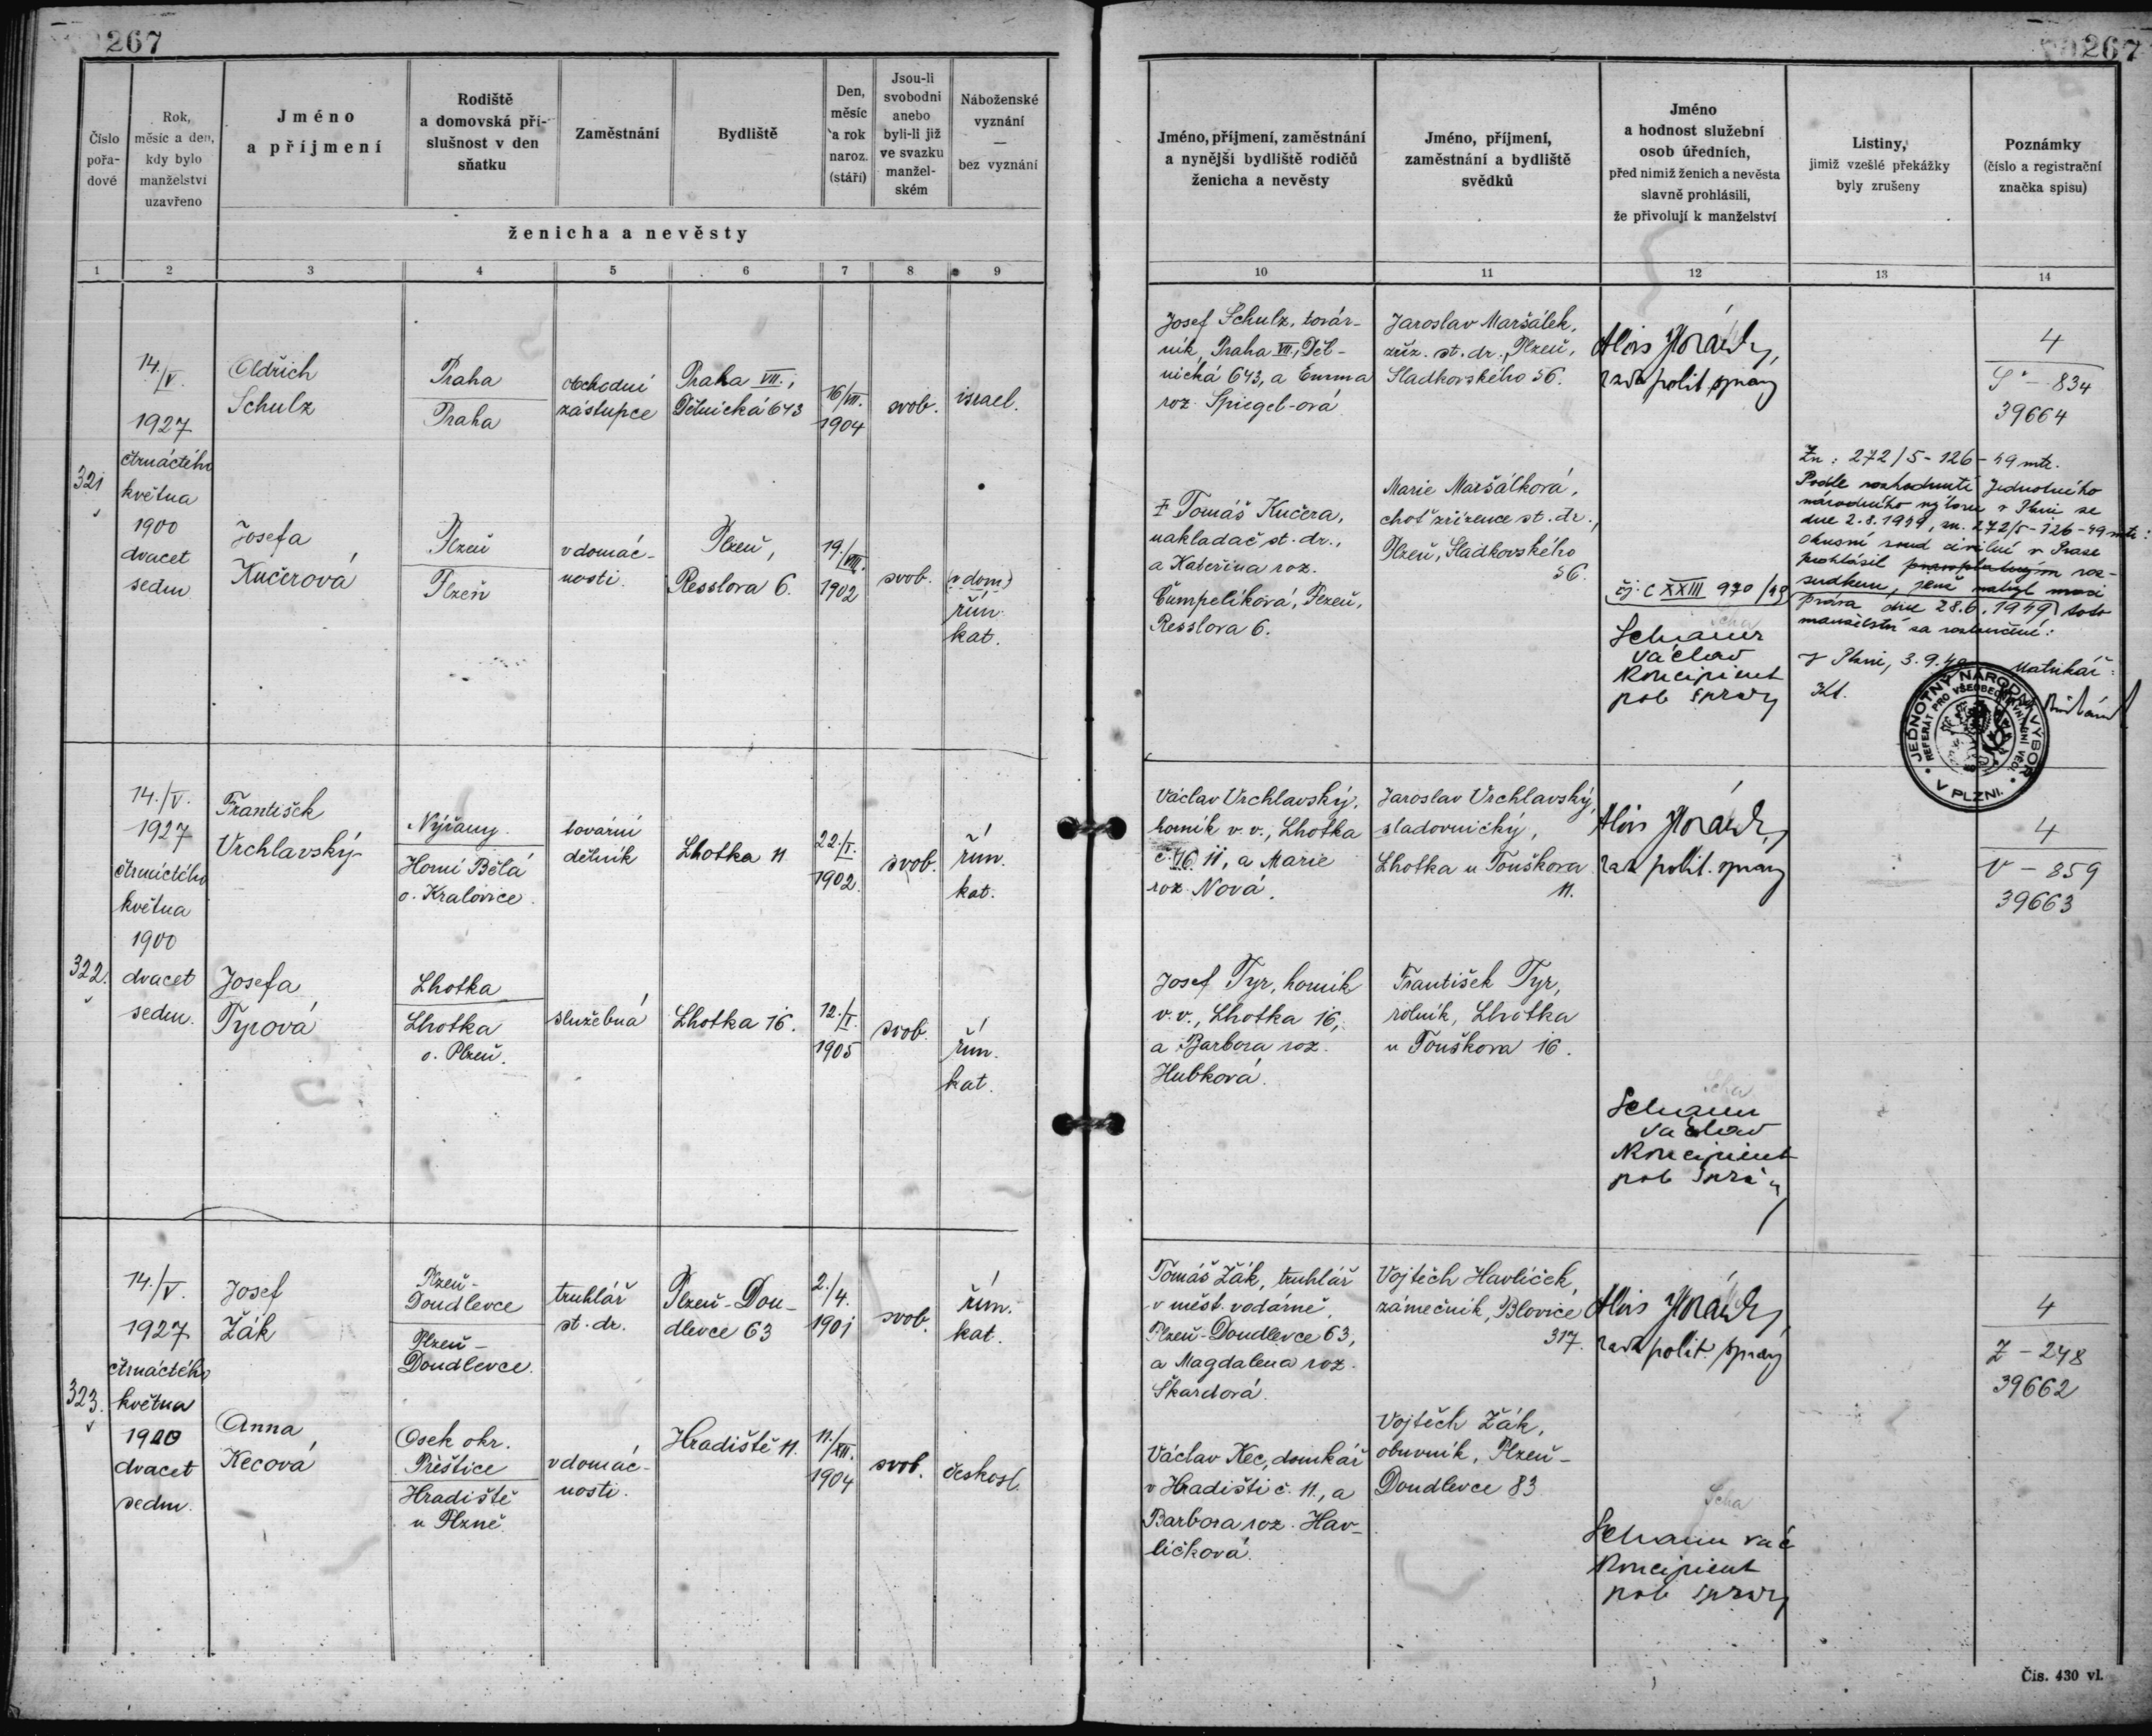 267
267
Číslo
pořa-
dové
Rok,
měsíc a den,
kdy bylo
manželství
uzavřeno
Jméno
a příjmení
Rodiště
a domovská pří-
slušnost v den
sňatku
Zaměstnání
Bydliště
Den,
měsíc
a rok
naroz.
(stáří)
Jsou-li
svobodni
anebo
byli-li již
ve svazku
manžel-
ském
Náboženské
vyznání
—
bez vyznání
ženicha a nevěsty
1 2 3 4 5 6 7 8 9
Jméno, příjmení, zaměstnání
a nynější bydliště rodičů
ženicha a nevěsty
Jméno, příjmení,
zaměstnání a bydliště
svědků
Jméno
a hodnost služební
osob úředních,
před nimiž ženich a nevěsta
slavně prohlásili,
že přivolují k manželství
Listiny,
jimiž vzešlé překážky
byly zrušeny
Poznámky
(číslo a registrační
značka spisu)
10 11 12 13 14
321
14./V.
1927
čtrnáctého
května
1900
dvacet
sedm
Oldřich
Schulz
Praha
Praha
obchodní
zástupce
Praha VII.,
Dělnická 643
16/VII.
1904
svob.
israel.
Josefa
Kučerová
Plzeň
Plzeň
v domác-
nosti.
Plzeň,
Resslova 6.
19./VIII.
1902
svob.
(v dom)
řím.
kat.
Josef Schulz, továr-
ník, Praha VII., Děl-
nická 643, a Emma
roz. Spiegel-ová
Jaroslav Maršálek,
zříz. st. dr., Plzeň,
Sladkovského 56.
Alois
rada polit. správy
4
S – 834
39664
‡ Tomáš Kučera,
nakladač st. dr.,
a Kateřina roz.
Čumpelíková, Plzeň,
Resslova 6.
Marie Maršálková,
choť zřízence st. dr.,
Plzeň, Sladkovského
56.
čj. C XXIII 970/49
Scha
Schauer
Václav
Koncipient
pol. správy
Zn: 272/5-126-49 mtr.
Podle rozhodnutí Jednotného
národního výboru v Plzni ze
dne 2.8.1949, zn. 272/5-126-49 mtr:
Okresní soud civilní v Praze
prohlásil roz-
sudkem, jenž nabyl moci
práva dne 28.6.1949 toto
manželství za rozloučené:
V Plzni, 3.9.49 Matrikář:
Kl.
JEDNOTNÝ NÁRODNÍ VÝBOR
REFERÁT PRO VŠEOBECNÉ VNITŘNÍ VĚCI
V PLZNI.
322.
14./V.
1927
čtrnáctého
května
1900
dvacet
sedm.
František
Vrchlavský
Nýřany.
Horní Bělá
o. Kralovice.
tovární
dělník
Lhotka 11
22./I.
1902.
svob.
řím.
kat.
Josefa
Tyrová
Lhotka
Lhotka
o. Plzeň.
služebná
Lhotka 16.
12./I.
1905
svob.
řím.
kat.
Václav Vrchlavský,
horník v. v., Lhotka
č. 16 11, a Marie
roz. Nová.
Jaroslav Vrchlavský,
sladovnický,
Lhotka u Touškova
11.
Alois
rada polit. správy
4
V – 859
39663
Josef Tyr, horník
v. v., Lhotka 16,
a Barbora roz.
Hubková.
František Tyr,
rolník, Lhotka
u Touškova 16.
Scha
Václav
Koncipient
pol. správy
323.
14./V.
1927
čtrnáctého
května
1900
dvacet
sedm.
Josef
Žák
Plzeň-
Doudlevce
Plzeň-
Doudlevce.
truhlář
st. dr.
Plzeň-Dou-
dlevce 63
2./4.
1901
svob.
řím.
kat.
Anna
Kecová
Osek okr.
Přeštice
Hradiště
u Plzně.
v domác-
nosti.
Hradiště 11.
11./XII.
1904
svob.
českosl.
Tomáš Žák, truhlář
v měst. vodárně,
Plzeň-Doudlevce 63,
a Magdalena roz.
Škardová.
Vojtěch Havlíček,
zámečník, Blovice
317.
Alois
rada polit. správy
4
Z – 248
39662
Václav Kec, domkář
v Hradišti č. 11., a
Barbora roz. Hav-
líčková.
Vojtěch Žák,
obuvník, Plzeň-
Doudlevce 83
Scha
Koncipient
pol. správy
Čís. 430 vl.